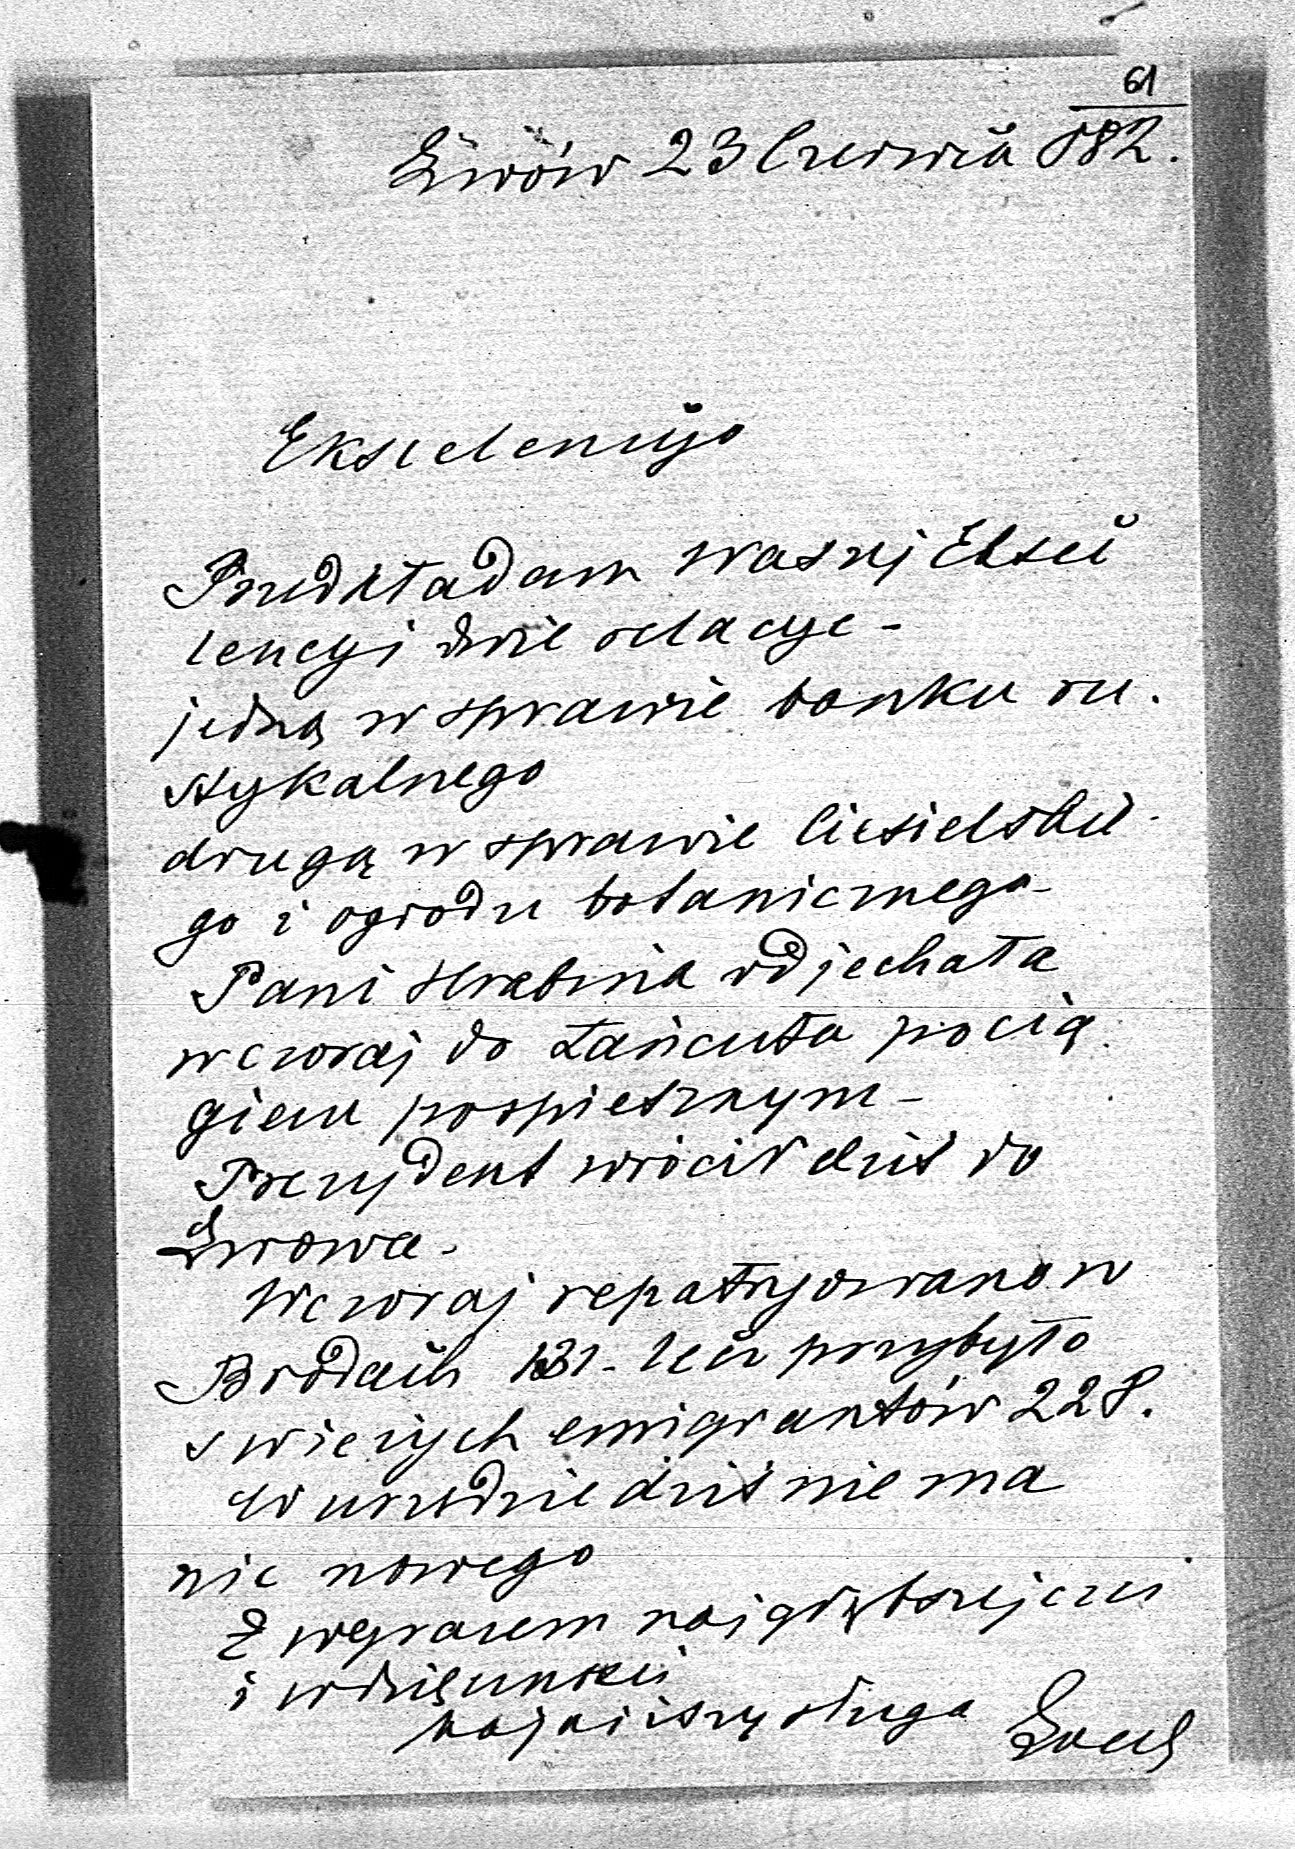 61
Lwów 23 Czerwca 882.
Ekscelencyjo
Przedkładam waszej Eksce
lencyi dwie relacye -
jedną w sprawie banku ru.
stykalnego
drugą w sprawie Ciesielskie
go i ogrodu botanicznego -
Pani Hrabina odjechała
wczoraj do Łańcuta pocią
giem pospiesznym -
Prezydent wrócił dziś do
Lwowa -
Wczoraj repatryowano w
Brodach 131 - lecz przybyło
swieżych emigrantów 228.
W urzędzie dziś nie ma
nic nowego
Z wyrazem najgłębszej czci
i wdzięczności
sługa